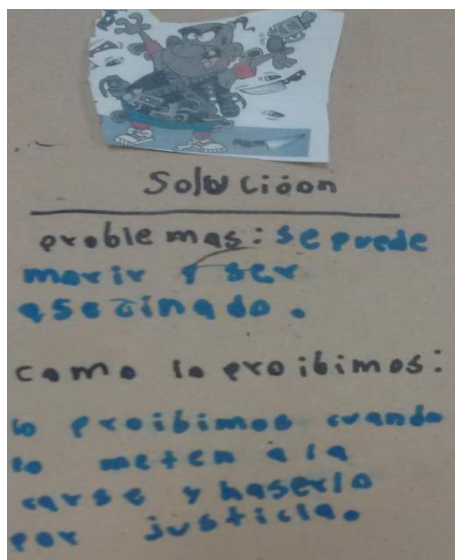 Solución
problemas: se puede
morir y ser
asecinado.
como lo proibimos:
lo proibimos cuando
lo meten a la
carse y haserlo
por justicia.